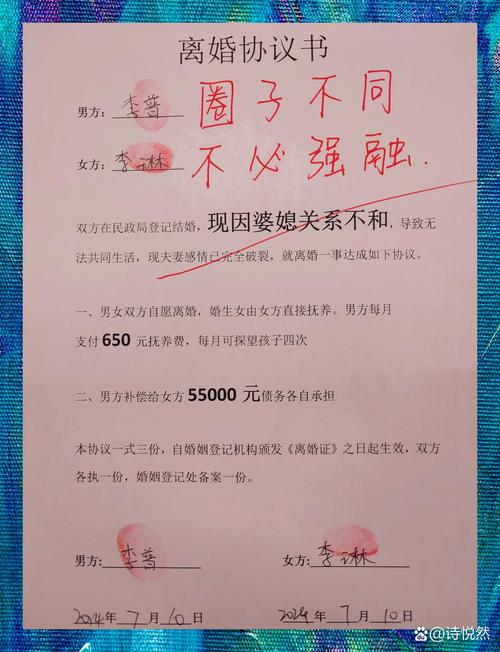 离婚协议书
男方：李普
圈子不同
女方：李琳
不必强融.
双方在民政局登记结婚，现因婆媳关系不和，导致无
法共同生活，现夫妻感情已完全破裂，就离婚一事达成如下协议。
一、男女双方自愿离婚，婚生女由女方直接抚养。男方每月
支付 650 元抚养费，每月可探望孩子四次
二、男方补偿给女方 55000 元债务各自承担
本协议一式三份，自婚姻登记机构颁发《离婚证》之日起生效，双方
各执一份，婚姻登记处备案一份。
男方：李普 女方：李琳
2024年 7 月 10 日 2024年 7 月 10 日
@诗悦然